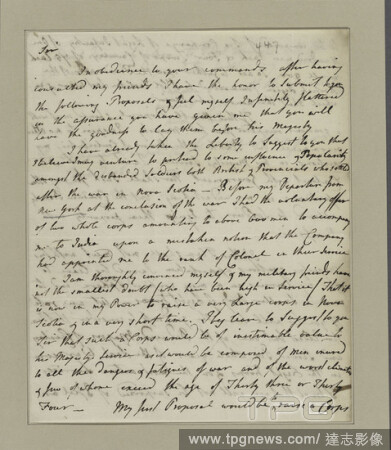 Sir
In obedience to your commands after having
consulted my friends I have the honor to submit to you
the following Proposals & feel myself Infinitely flattered
in the assurance you have given me that you will
have the goodness to lay them before his Majesty
I have already taken the Liberty to Suggest to you that
I may venture to pretend to some influence & Popularity
amongst the Disbanded Soldiers both British & Provincials who settled
after the war in Nova Scotia — Before my Departure from
New York at the conclusion of the war I had the voluntary offer
of two whole corps amounting to above men to accompany
me to India upon a mistaken notion that the Company
had appointed me to the rank of Colonel in their service
I am thoroughly convinced myself & my military friends have
not the smallest doubt (who have been high in Service) That it
is now in my Power to raise a very large corps in Nova
Scotia & in a very short time. I beg leave to Suggest to you
Sir that such a Corps would be of inestimable value to
his Majesty's Service as it would be composed of men inured
to all the dangers & fatigues of war and of the
& few of whom exceed the age of Thirty three or Thirty
Four — My first Proposal would be to raise a Corps
www.tpgnews.com / 達志影像